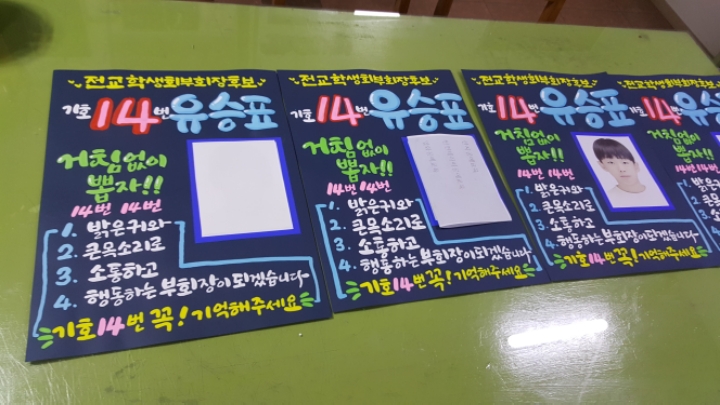 전교학생회부회장후보
기호 14번 유승표
거침없이
뽑자!!
14번 14번
1. 밝은귀와
2. 큰목소리로
3. 소통하고
4. 행동하는 부회장이되겠습니다
기호14번 꼭! 기억해주세요
전교학생회부회장후보
기호 14번 유승표
거침없이
뽑자!!
14번 14번
1. 밝은귀와
2. 큰목소리로
3. 소통하고
4. 행동하는 부회장이되겠습니다
기호14번 꼭! 기억해주세요
전교학생회부회장후보
기호 14번 유승표
거침없이
뽑자!!
14번 14번
1. 밝은귀와
2. 큰목소리로
3. 소통하고
4. 행동하는 부회장이되겠습니다
기호14번 꼭! 기억해주세요
전교학생회부회장후보
기호 14번 유승
거침없이
뽑자!!
14번 14번
1. 밝은귀와
2. 큰목소리로
3. 소통하고
4. 행동하는
기호14번